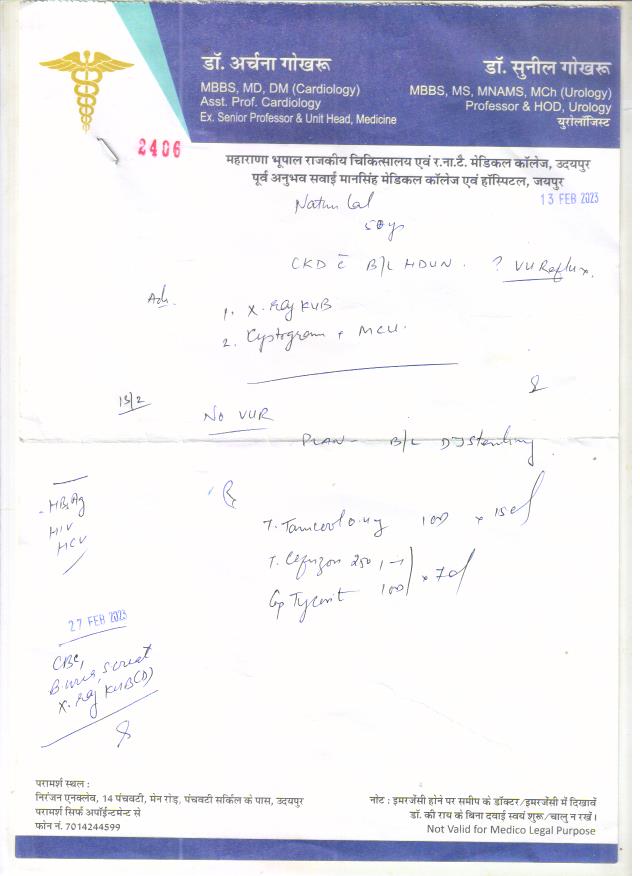 डॉ. अर्चना गोखरू
MBBS, MD, DM (Cardiology)
Asst. Prof. Cardiology
Ex. Senior Professor & Unit Head, Medicine
डॉ. सुनील गोखरू
MBBS, MS, MNAMS, MCh (Urology)
Professor & HOD, Urology
युरोलॉजिस्ट
2406
महाराणा भूपाल राजकीय चिकित्सालय एवं र.ना.टै. मेडिकल कॉलेज, उदयपुर
पूर्व अनुभव सवाई मानसिंह मेडिकल कॉलेज एवं हॉस्पिटल, जयपुर
13 FEB 2023
Lal
50y
CKD c̄ B/L HDUN. ? VUReflux.
Adv.
1. X-Ray KUB
2. Cystogram + MCU.
13/2
No VUR
PLAN- B/L DJ Stenting
HBsAg
HIV
HCV
Rx
1 0D x 15d
250 1-1
10D x 7d
27 FEB 2023
CBC,
B. urea, S. creat
X-Ray KUB (D)
परामर्श स्थल :
निरंजन एनक्लेव, 14 पंचवटी, मेन रोड़, पंचवटी सर्किल के पास, उदयपुर
परामर्श सिर्फ अपॉईन्टमेन्ट से
फोन नं. 7014244599
नोट : इमरजेंसी होने पर समीप के डॉक्टर/इमरजेंसी में दिखावें
डॉ. की राय के बिना दवाई स्वयं शुरू/चालु न रखें।
Not Valid for Medico Legal Purpose